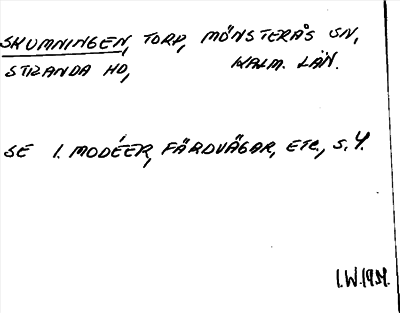 SKUMNINGEN, TORP, MÖNSTERÅS SN,
STRANDA HD, KALM. LÄN.
SE I. MODÉER, FÄRDVÄGAR, ETC., S. 4.
I.W. 1951.